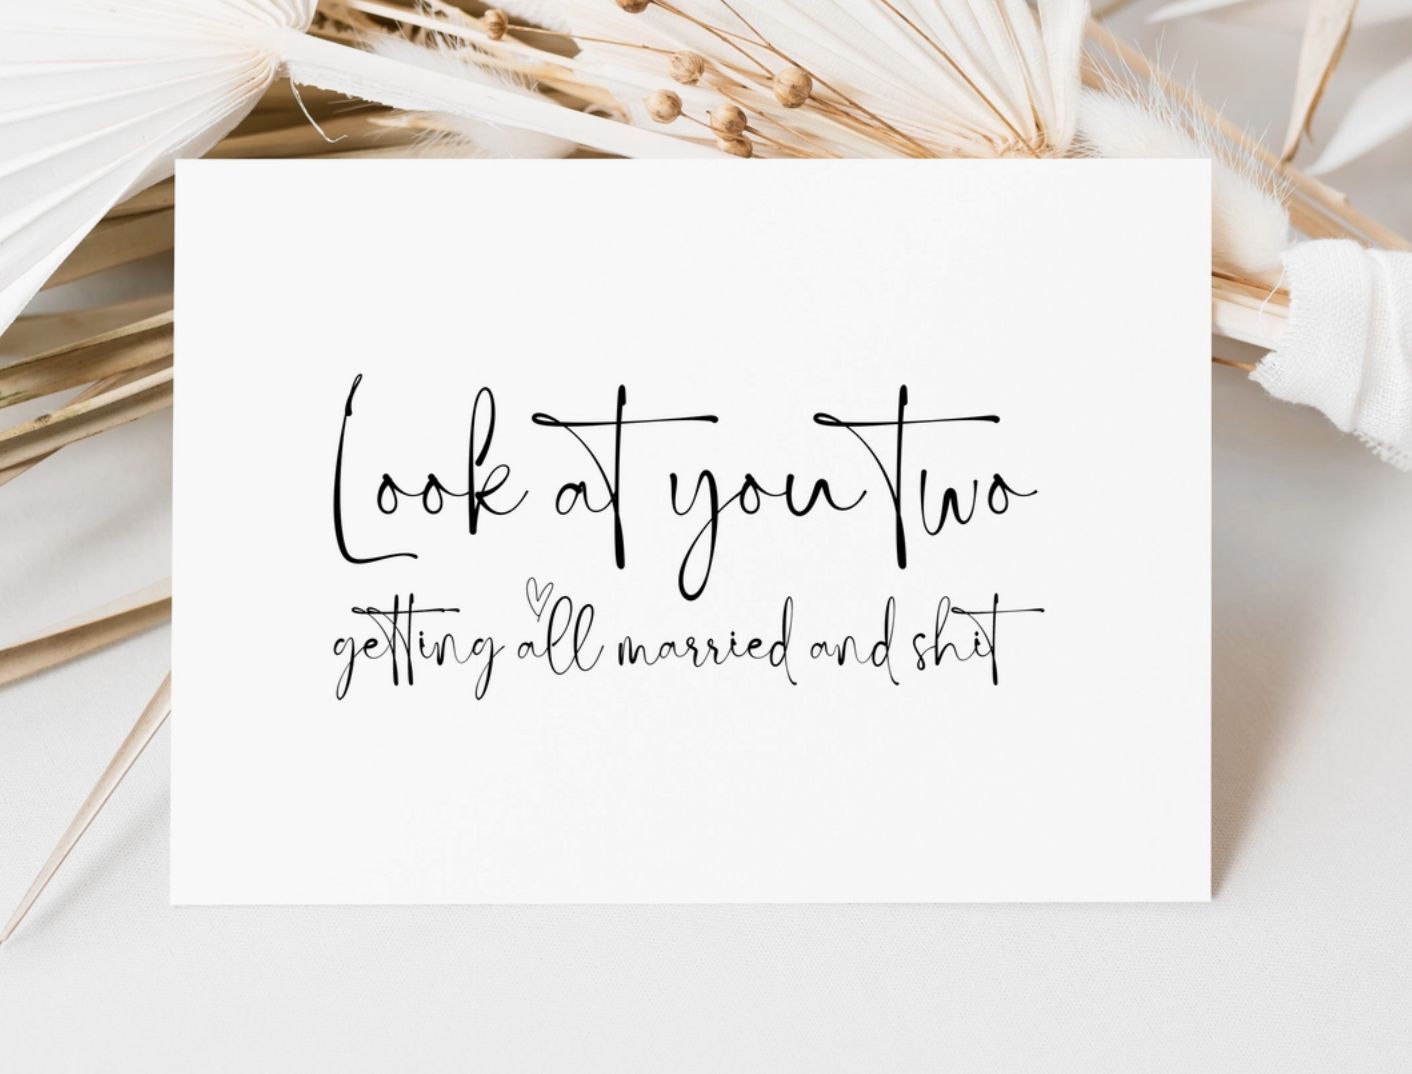 Look at you two
getting all married and shit